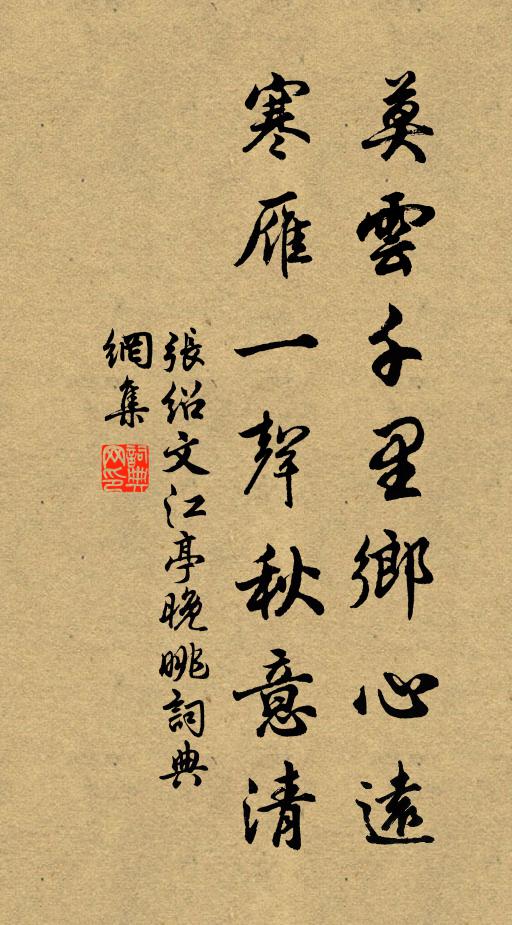 莫雲千里鄉心遠
寒雁一聲秋意清
張紹文江亭晚眺詞典
網集
詞典
网印